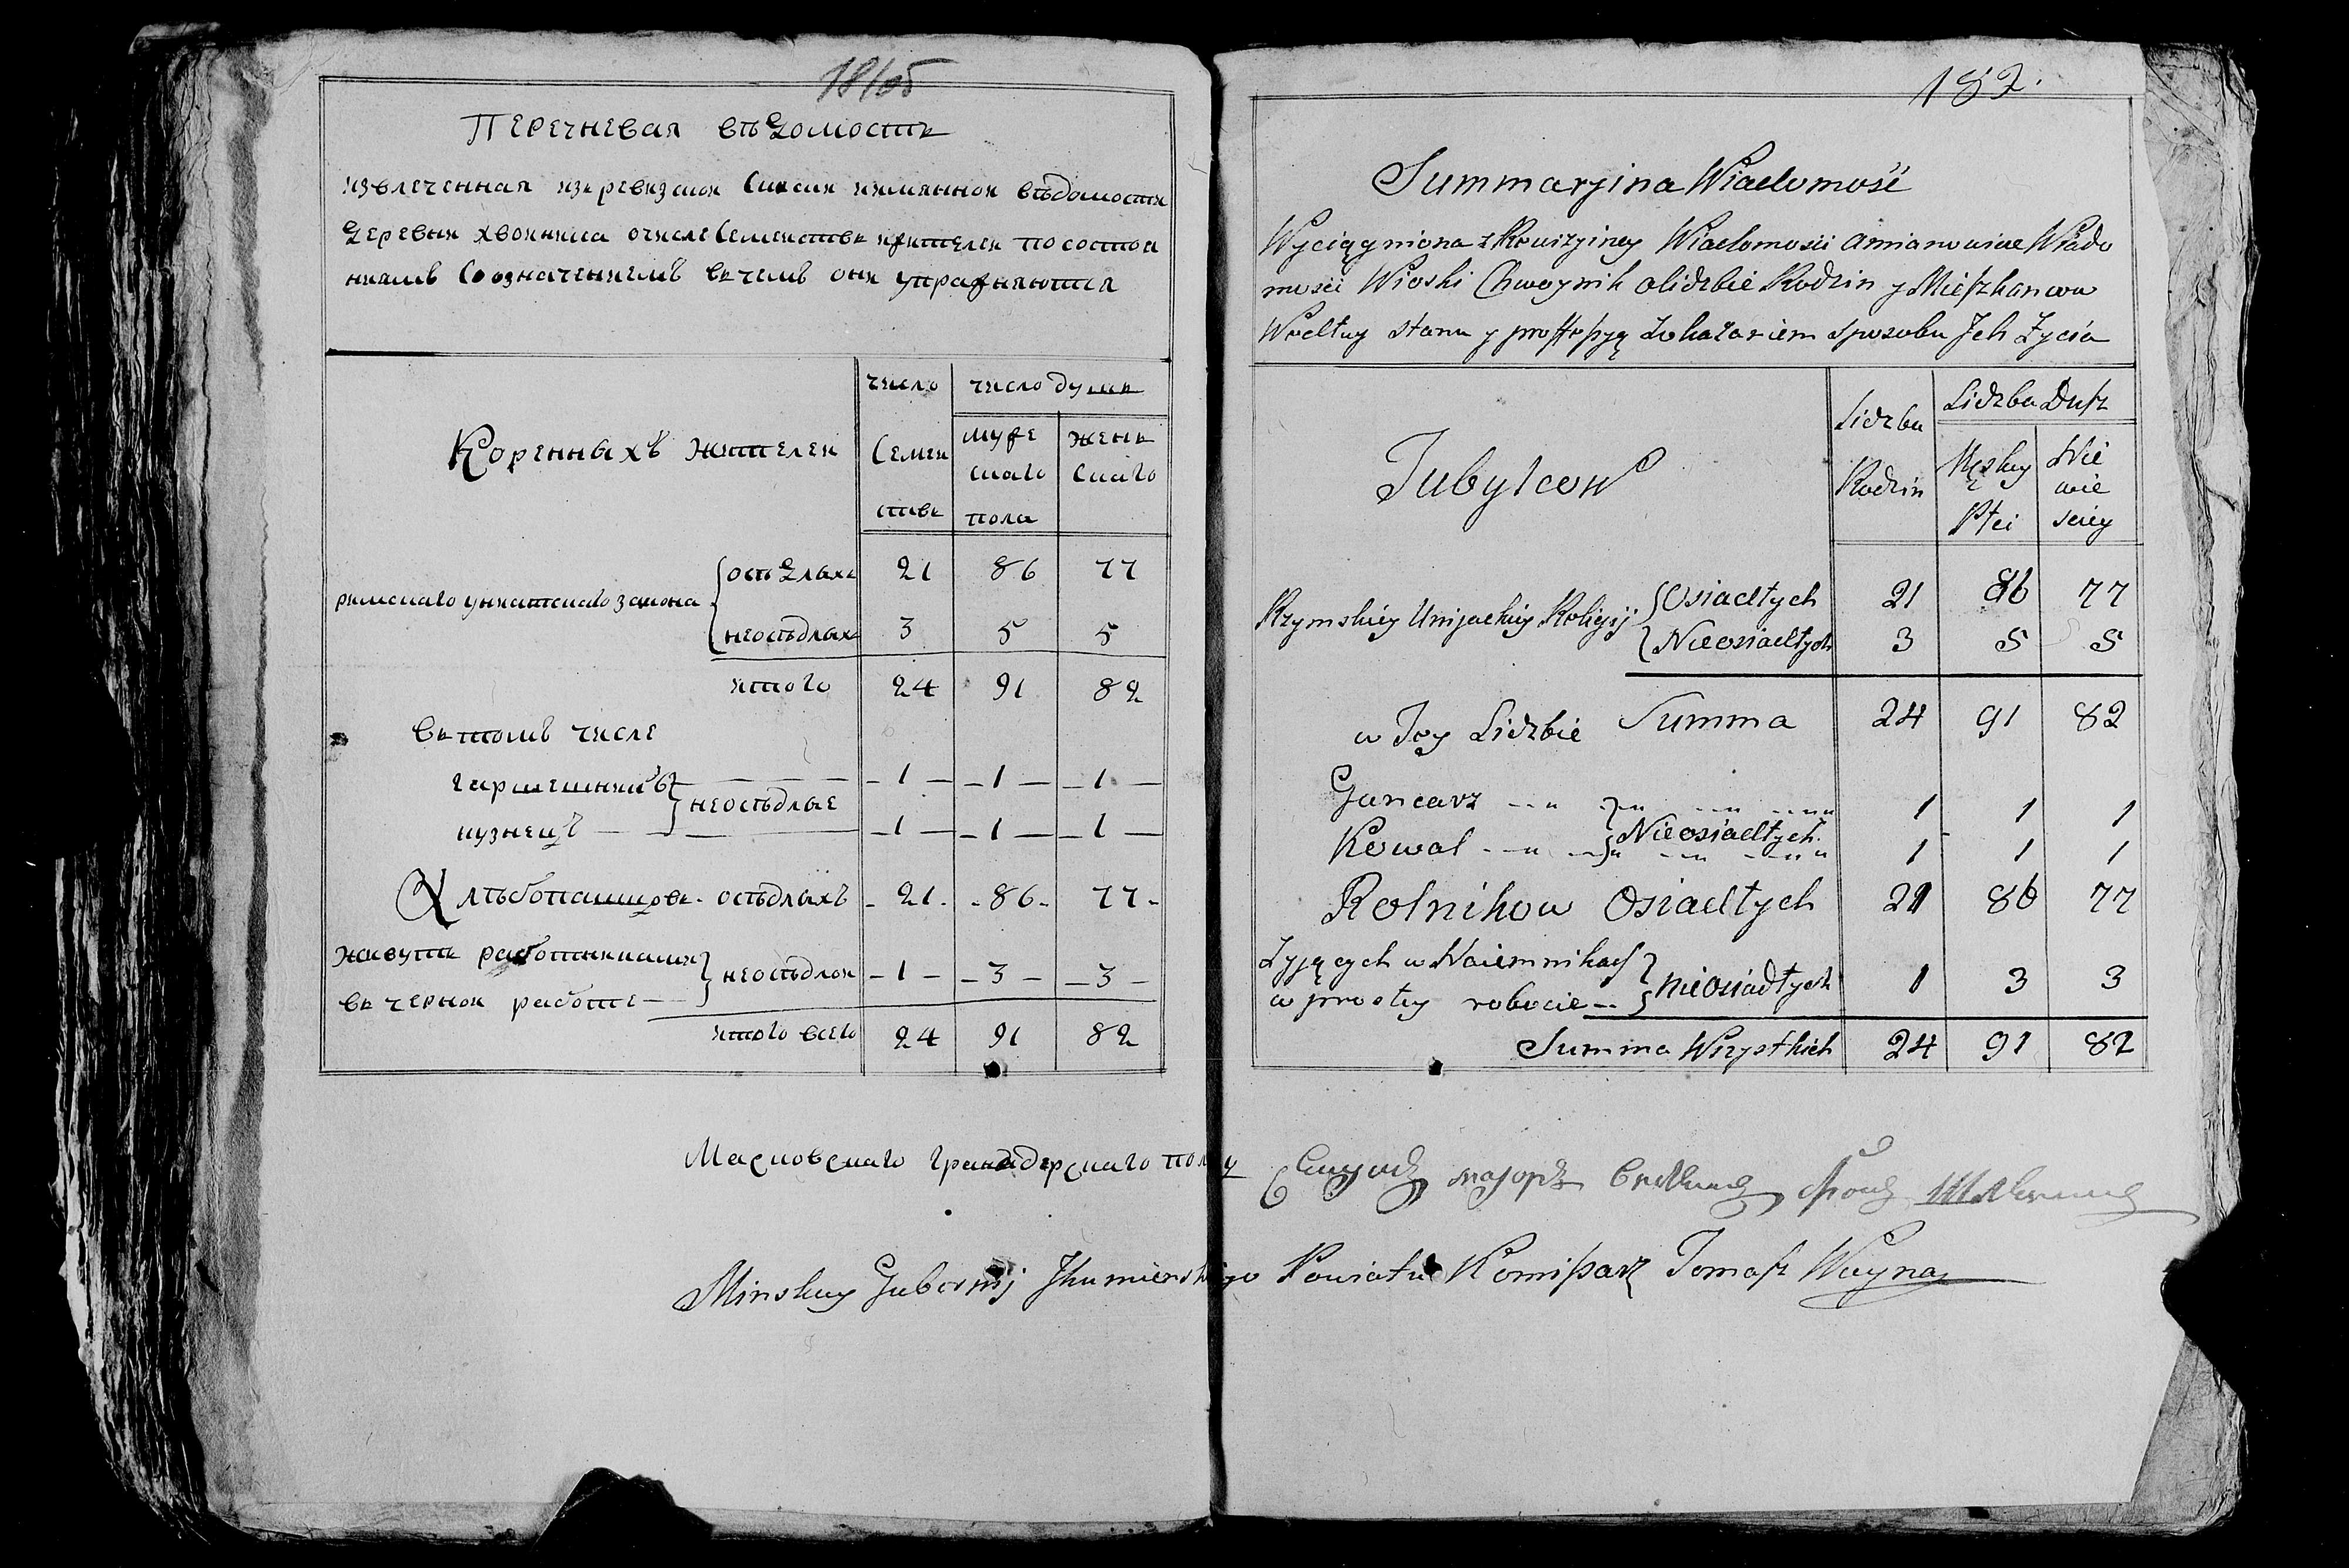 Перечневая вѣдомость
извлеченная изъ ревизской Сказки имянной вѣдомости
деревни Хвойника о числе Семействъ и жителей по состоя
ниямъ Со означениемъ въ чемъ они упражняются
Коренныхъ жителей
число Семействъ
число душъ
мужескаго пола
женскаго
римскаго униатскаго закона
осѣдлыхъ 21 86 77
неосѣдлыхъ 3 5 5
итого 24 91 82
въ томъ числе
гаршешникъ — 1 — 1 — 1 —
неосѣдлые
кузнецъ — 1 — 1 — 1 —
Хлѣбопашцовъ осѣдлыхъ - 21 - 86 - 77 -
живутъ работниками
неосѣдлой - 1 - 3 - 3 -
въ черной работе
итого всего 24 91 82
182.
Summaryina Wiadomość
Wyciągniona z Rewizyiney Wiadomosci
mosci Wioski Chwoynik o lidzbie Rodzin y Mieszkancow
Według stanu y Sposobu Jch Życia
Tubylcow
Lidzba Rodzin
Lidzba Dusz
Męskey Płci
Niewiesciey
Rzymskiey Unijackiey Religij
Osiadłych 21 86 77
Nieosiadłych 3 5 5
w Tey Lidzbie Summa 24 91 82
Garncarz 1 1 1
Nieosiadłych
Kowal 1 1 1
Rolnikow Osiadłych 21 86 77
Zyjących w Naiemnikach
nieosiadłych 1 3 3
w prostey robocie
Summa Wszystkich 24 91 82
Московскаго гранадерскаго полку Секундъ маіоръ фонъ
Minskiey Gubernij Jhumienskiego Powiatu Komisarz Tomasz Woyna